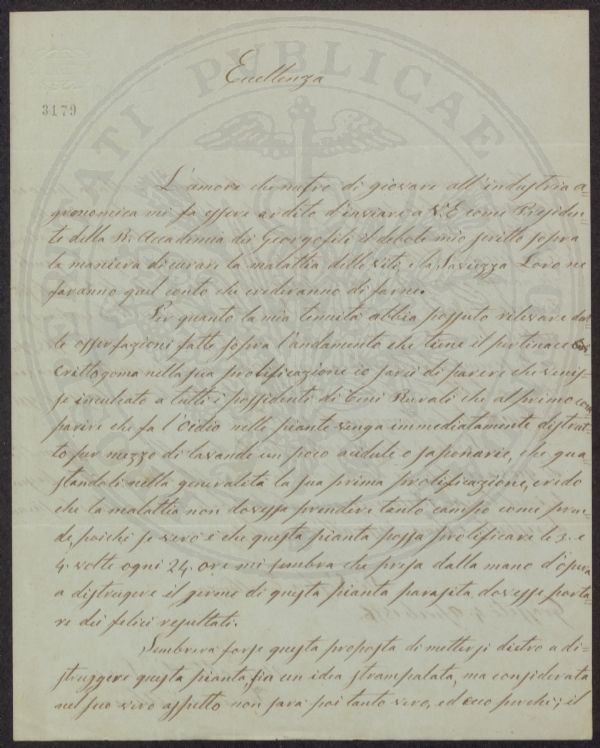 Eccellenza
3179
L'amore che nutro di giovare all'industria a-
gronomica mi fa essere ardito d'inviare a V.E. come Presiden-
te della R. Accademia dei Georgofili il debole mio scritto sopra
la maniera di curare la malattia delle viti, e la Saviezza Loro ne
faranno quel conto che crederanno di farne.
Per quanto la mia tenuità abbia possuto rilevare dal-
le osservazioni fatte sopra l'andamento che tiene il pertinace
Crittogoma nella sua prolificazione io sarei di parere che venis-
se inculcato a tutti i possidenti di Beni Rurali che al primo com
parire che fa l'Oidio nelle piante venga immediatamente distrut-
to per mezzo di lavande un poco acidule o saponarie, che gua-
standoli nella generalità la sua prima prolificazione, credo
che la malattia non dovesse prendere tanto campo come pren-
de, poichè se vero è che questa pianta possa prolificare le 3. e
4. volte ogni 24. ore mi sembra che presa dalla mano d'opera
a distrugere il germe di questa pianta parasita dovesse porta-
re dei felici resultati.
Sembrerà forse questa proposta di mettersi dietro a di-
struggere questa pianta, sia un idea strampalata, ma considerata
nel suo vero aspetto non sarà poi tanto vero, ed ecco perchè; il
PUBLICAE